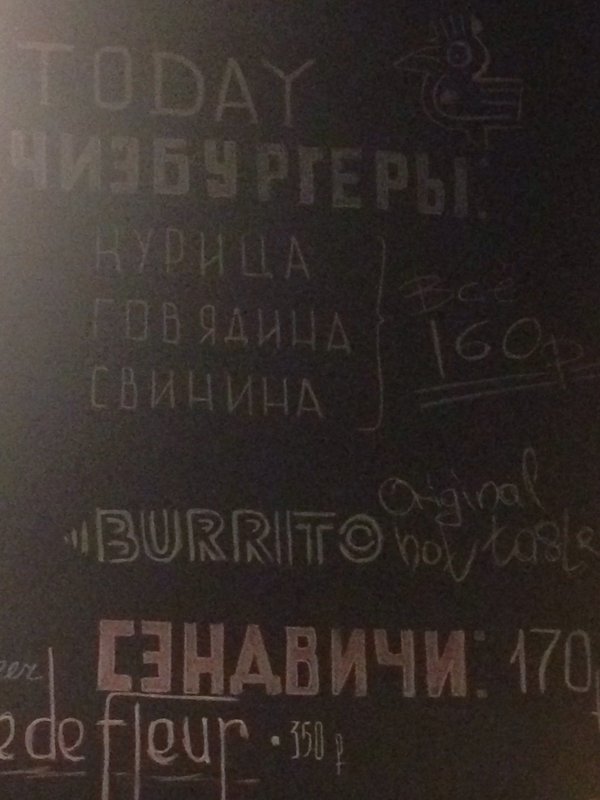 TODAY
ЧИЗБУРГЕРЫ:
КУРИЦА
ГОВЯДИНА
СВИНИНА
Всё
160р
BURRITO
Original
hot taste
СЭНДВИЧИ: 170
eer
e de fleur • 350 р